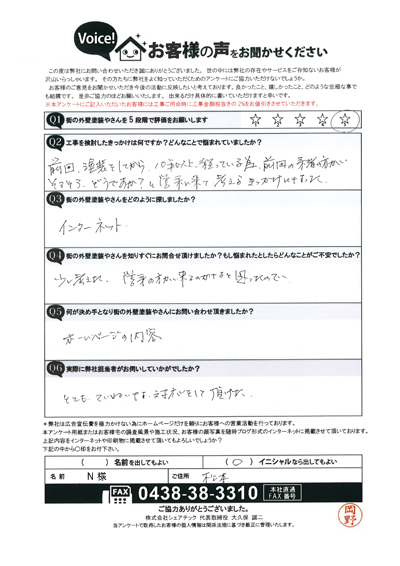 Voice!
お客様の声をお聞かせください
この度は弊社にお問い合わせいただき誠にありがとうございました。 世の中には弊社の存在やサービスをご存知ないお客様が
沢山いらっしゃいます。 その方たちに弊社をよく知っていただくためのアンケートにご協力いただけないでしょうか。
お客様のご意見をお聞かせいただき今後の活動に反映したいと考えております。良かったこと、嬉しかったこと、どのような些細な事で
も結構です。 是非ご協力のほどお願いいたします。 出来るだけ具体的に書いていただけますと幸いです。
※本アンケートにご記入いただいたお客様には工事ご用命時に工事金額税抜きの2%をお値引きさせていただきます。
Q1 街の外壁塗装やさんを5段階で評価をお願いします
☆ ☆ ☆ ☆ ☆
Q2 工事を検討したきっかけは何ですか?どんなことで悩まれていましたか?
前回、塗装をしてから、10年以上、経っている為、前回の業者の方が
そろそろ、どうですか?と営業に来て考えるきっかけになった
Q3 街の外壁塗装やさんをどのように探しましたか?
インターネット
Q4 街の外壁塗装やさんを知りすぐにお問合せ頂けましたか?もし悩まれたとしたらどんなことがご不安でしたか?
少し考えた、営業の方が来るのかなと思ったので、
Q5 何が決め手となり街の外壁塗装やさんにお問い合わせ頂きましたか?
ホームページの内容
Q6 実際に弊社担当者がお伺いしていかがでしたか?
とても、ていねいな、対応をして頂けた
*弊社は広告宣伝費を極力かけない為にホームページだけを頼りにお客様への営業活動を行っております。
本アンケート用紙またはお客様宅の調査風景や施工状況、お客様の顔写真を随時ブログ形式のインターネットに掲載させて頂いております。
上記内容をインターネットや印刷物に掲載させて頂いてもよろしいでしょうか?
下記の中から〇印をお付け下さい。
( ) 名前を出してもよい
( 〇 ) イニシャルなら出してもよい
名 前
N 様
ご住所
FAX 0438-38-3310 本社直通 FAX番号
ご協力ありがとうございました。
株式会社シェアテック 代表取締役 大久保 誠二
当アンケートで取得したお客様の個人情報は関係法規に基づき厳正に管理いたします。
岡野